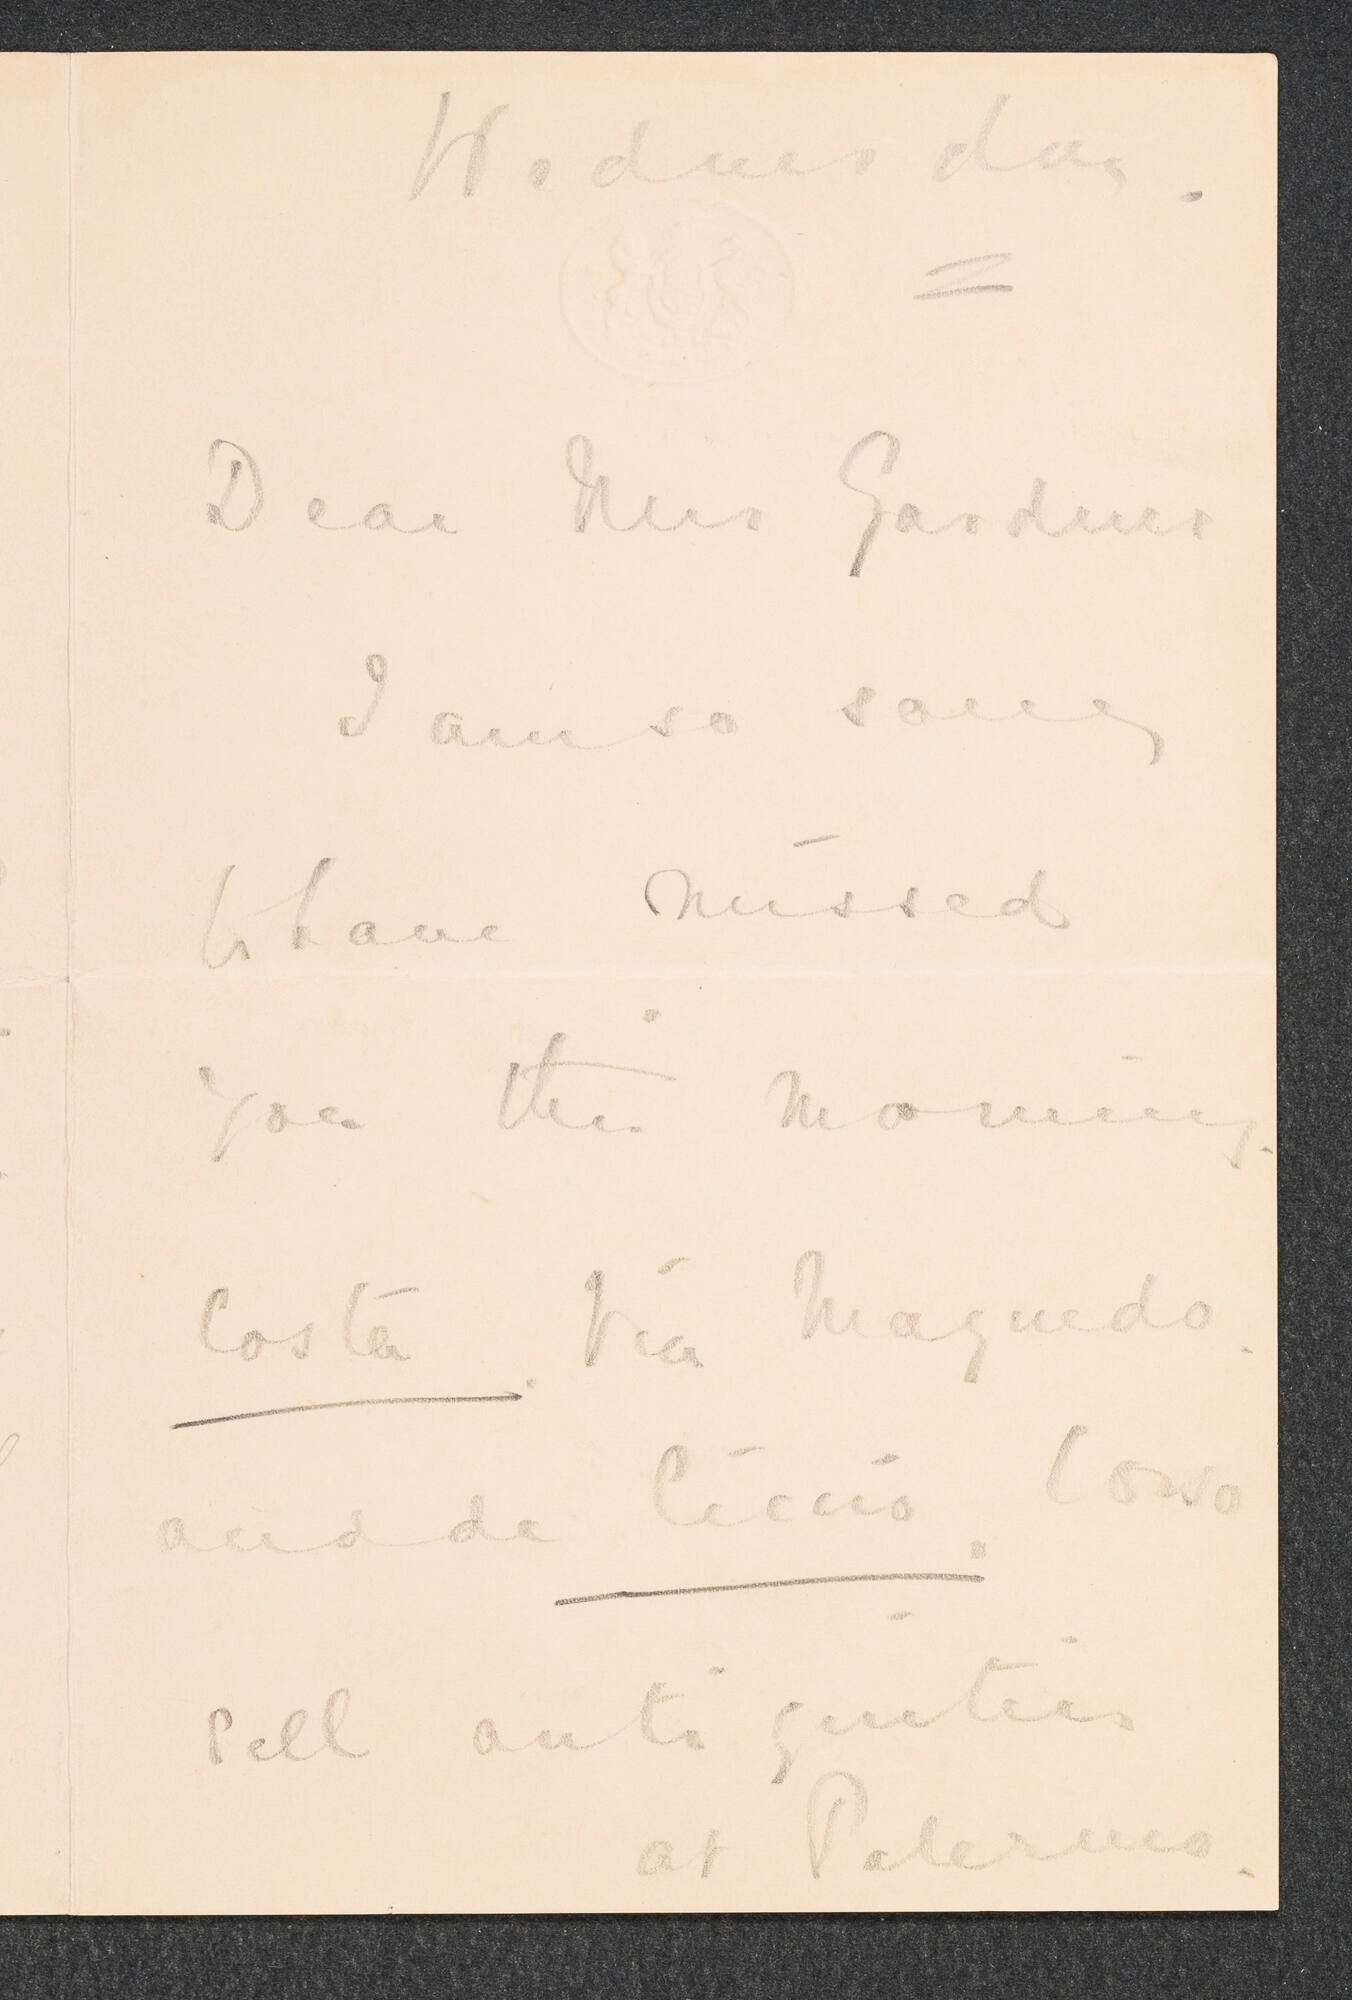 Wednesday.
Dear Mrs Gardner
I am so sorry
to have missed
you this morning.
Costa. Via Maquedo.
and de Ciccio. Corso
sell antiquities
at Palermo.